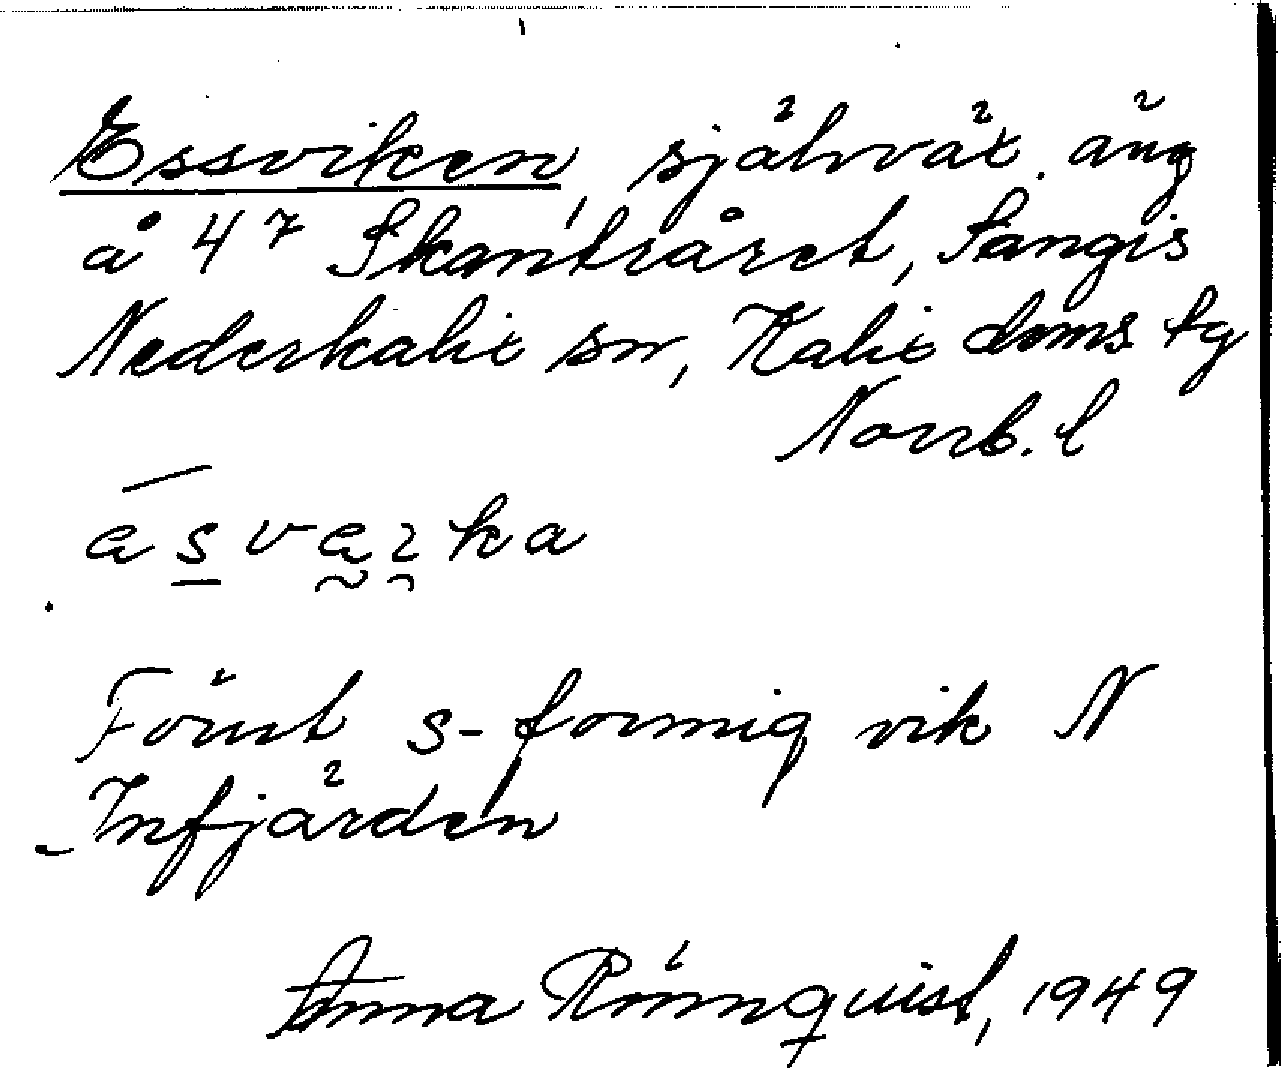 Essviken, självväx. äng
å 4⁷ Skanträret, Sangis
Nederkalix sn, Kalix doms. tg
Norrb. l
Förut s-formig vik N
Infjärden
Anna Rönnquist, 1949